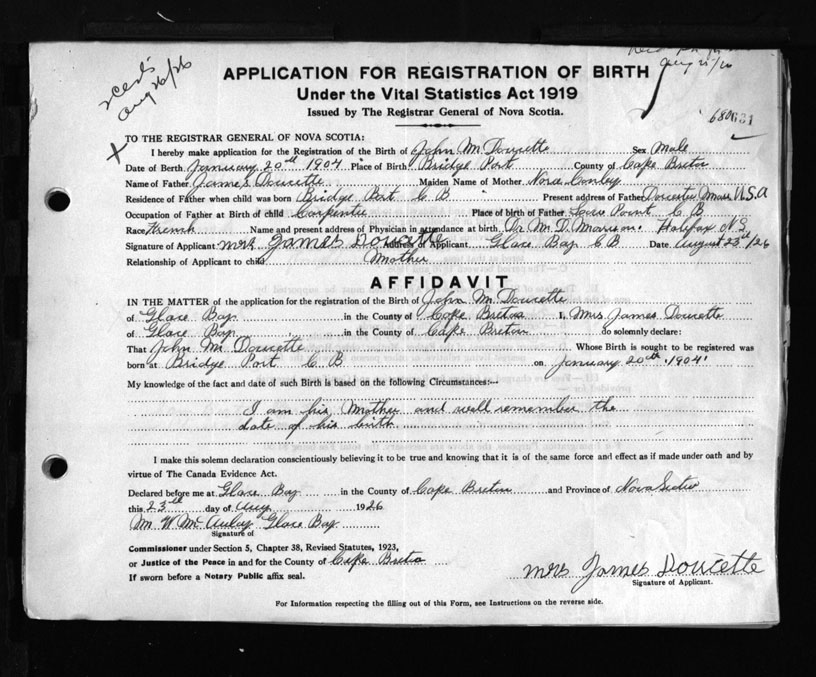 recd
Aug 26/26
Aug 25/26
APPLICATION FOR REGISTRATION OF BIRTH
Under the Vital Statistics Act 1919
Issued by The Registrar General of Nova Scotia.
TO THE REGISTRAR GENERAL OF NOVA SCOTIA:
I hereby make application for the Registration of the Birth of John M. Doucette Sex Male
Date of Birth January 20th 1904 Place of Birth Bridge Port County of Cape Breton
Name of Father James Doucette Maiden Name of Mother Nora Conley
Residence of Father when child was born Bridge Port C B Present address of Father Dorcester Mass U.S.A
Occupation of Father at Birth of child Carpenter Place of birth of Father Point C B
Race French Name and present address of Physician in attendance at birth Dr M. D. Morrison. Halifax N S.
Signature of Applicant Mrs James Doucette Address of Applicant Glace Bay C B Date August 23rd/26
Relationship of Applicant to child Mother
AFFIDAVIT
IN THE MATTER of the application for the registration of the Birth of John M Doucette
of Glace Bay in the County of Cape Breton I, Mrs James Doucette
of Glace Bay in the County of Cape Breton do solemnly declare:
That John M. Doucette Whose Birth is sought to be registered was
born at Bridge Port C B on January 20th 1904
My knowledge of the fact and date of such Birth is based on the following Circumstances:—
I am his Mother and well remember the
date of his birth
I make this solemn declaration conscientiously believing it to be true and knowing that it is of the same force and effect as if made under oath and by
virtue of The Canada Evidence Act.
Declared before me at Glace Bay in the County of Cape Breton and Province of Nova Scotia
this 23rd day of Aug 1926
Wm W McAulay Glace Bay
Signature of
Commissioner under Section 5, Chapter 38, Revised Statutes, 1923,
or Justice of the Peace in and for the County of Cape Breton
If sworn before a Notary Public affix seal.
Mrs James Doucette
Signature of Applicant.
For Information respecting the filling out of this Form, see Instructions on the reverse side.